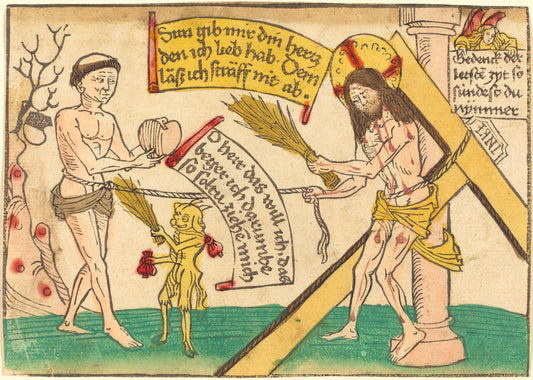 Sun gib mir din hertz
den ich lieb hab. Dem
läß ich sträff nit ab.
O herr das will ich das
beger ich darumbe
so soltu ziehē mich
Gedenck der
letste zyt so
sündest du
nymmer
INRI